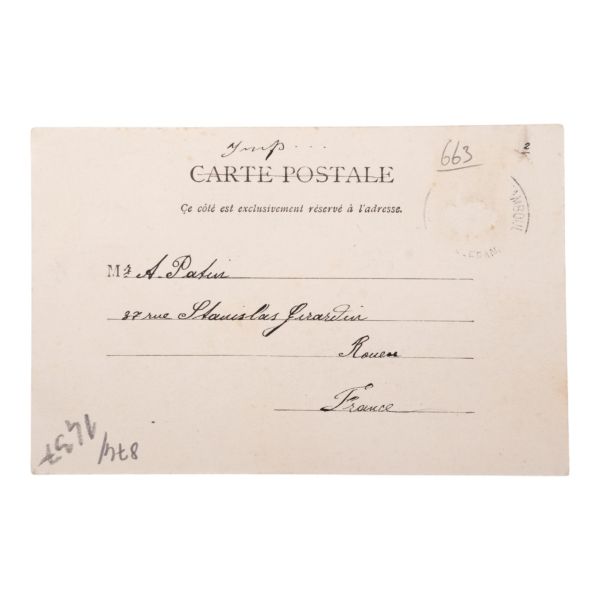 Imp...
663
2
CARTE POSTALE
Çe côté est exclusivement réservé à l'adresse.
Mr A. Patin
37 rue Stanislas Girardin
Rouen
France
874/